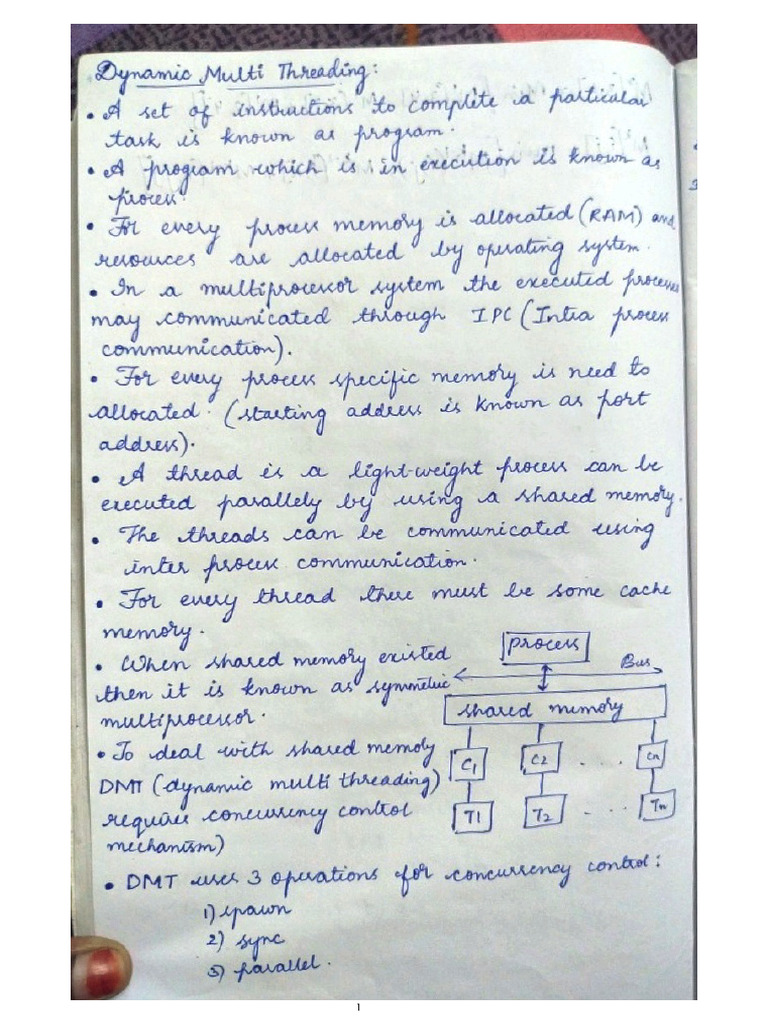 Dynamic Multi Threading:
• A set of instructions to complete a particular
task is known as program.
• A program which is in execution is known as
process.
• For every process memory is allocated (RAM) and
resources are allocated by operating system.
• In a multiprocessor system the executed processes
may communicated through IPC (Intra process
communication).
• For every process specific memory is need to
allocated. (starting address is known as port
address).
• A thread is a light-weight process can be
executed parallely by using a shared memory.
• The threads can be communicated using
inter process communication.
• For every thread there must be some cache
memory.
• When shared memory existed
then it is known as symmetric
multiprocessor.
• To deal with shared memory
DMT (dynamic multi threading)
requires concurrency control
mechanism)
process
Bus
shared memory
C1 C2 . . . Cn
T1 T2 - . . . Tn
• DMT uses 3 operations for concurrency control:
1) spawn
2) sync
3) parallel.
1